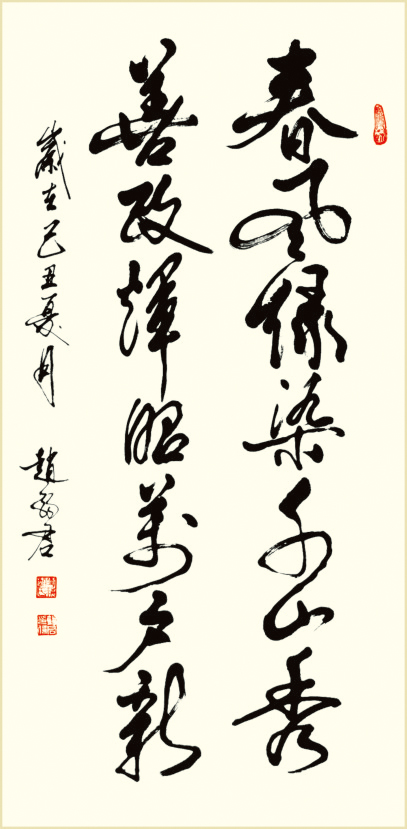 春風綠染千山秀
善政輝昭萬戶新
歲在己丑夏月
趙君